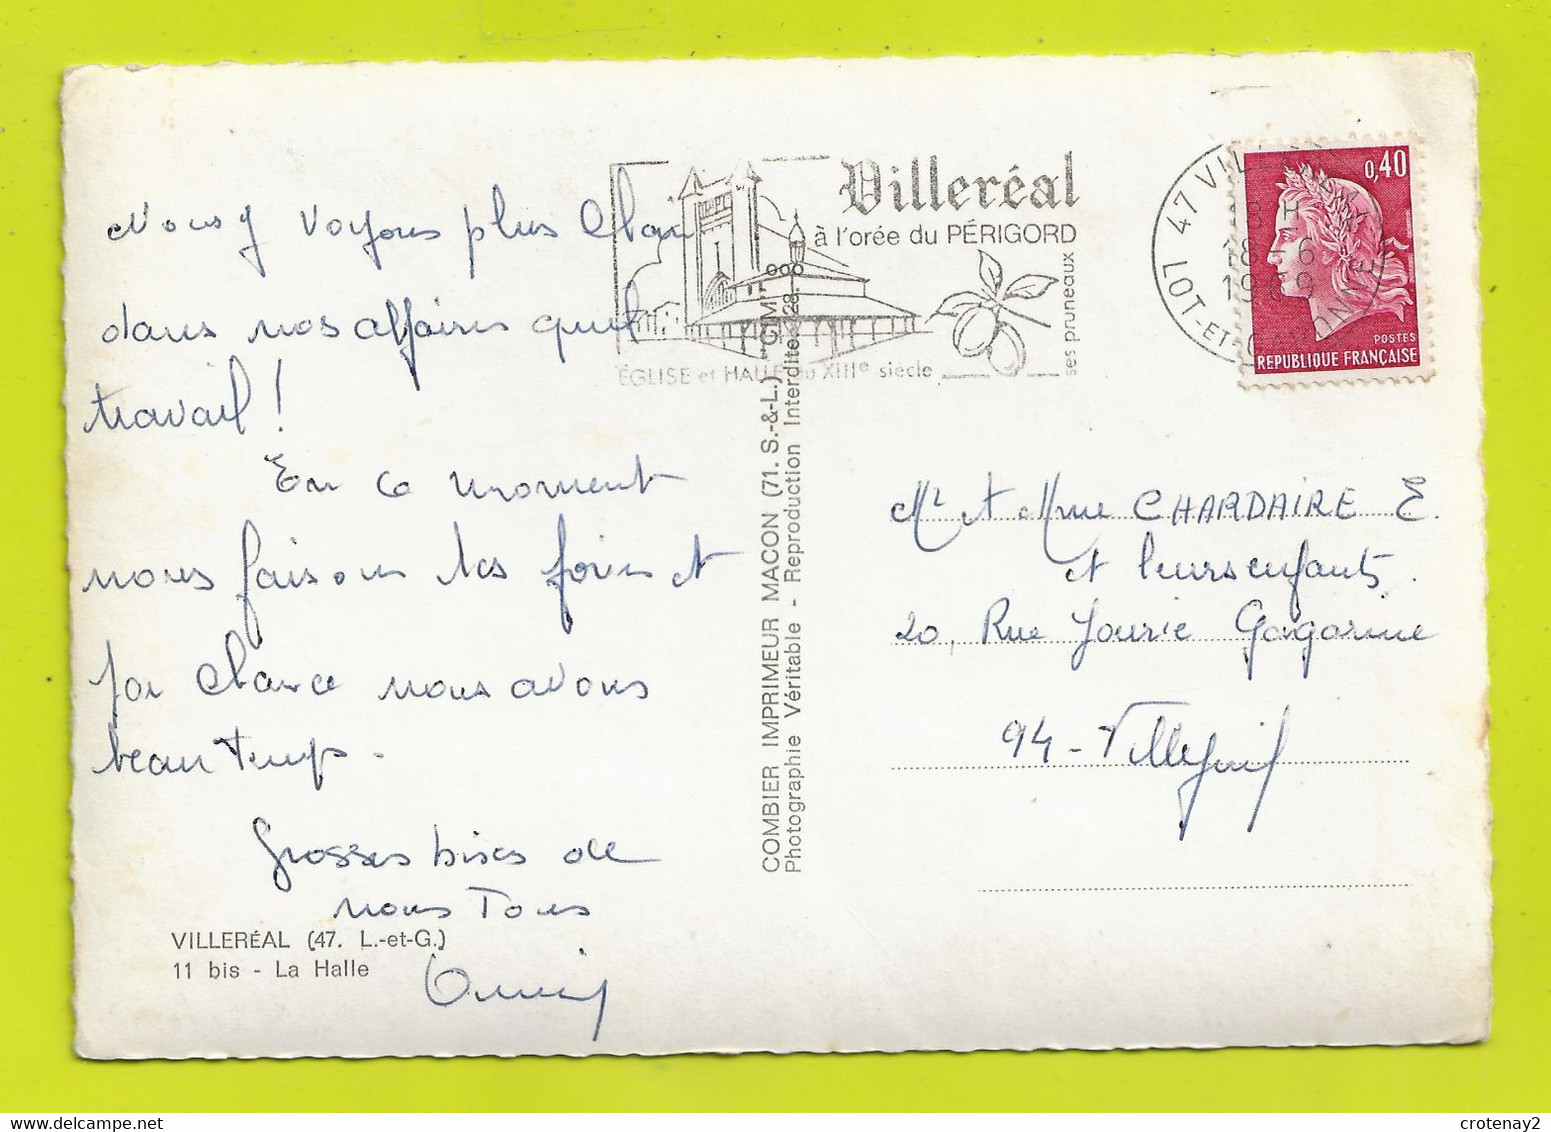 Nous y voyons plus clair
dans nos affaires quel
travail !
En ce moment
nous faisons les foins et
par chance nous avons
beau temps.
Grosses bises de
nous Tous
VILLERÉAL (47. L.-et-G.)
11 bis - La Halle
Villeréal
à l'orée du PÉRIGORD
ÉGLISE et HALLE du XIIIe siècle
ses pruneaux
COMBIER IMPRIMEUR MACON (71. S.-&-L.) "CIM"
Photographie Véritable - Reproduction Interdite
47 VILLEREAL
18 H
18-6
1969
LOT-ET-GARONNE
0,40
POSTES
REPUBLIQUE FRANÇAISE
Mr et Mme CHARDAIRE E.
et leurs enfants.
20, Rue Youri Gagarine
94 - Villejuif
crotenay2